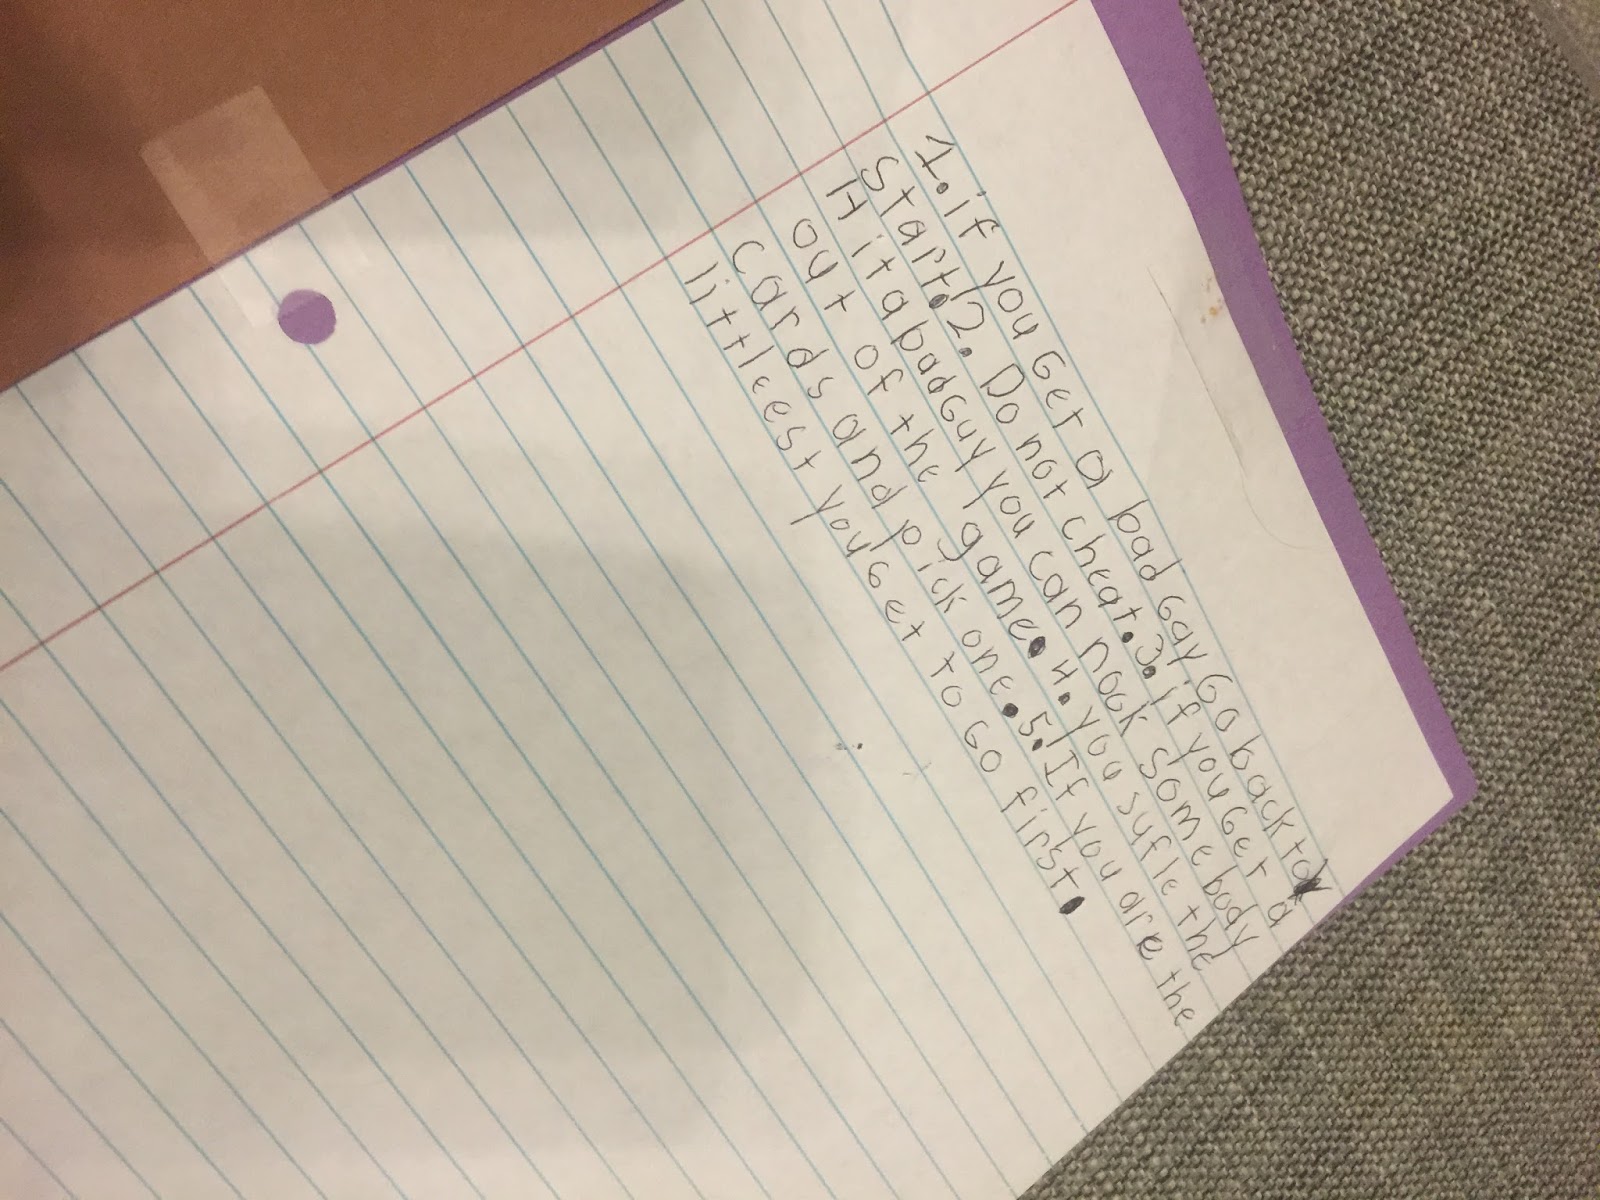 1. if you Get a bad Gay Go back to
Start. 2. Do not cheat. 3. if you Get a
Hit a bad Guy you can nock some body
out of the game. 4. you sufle the
Cards and pick one. 5. If you are the
littleest you Get to Go first.